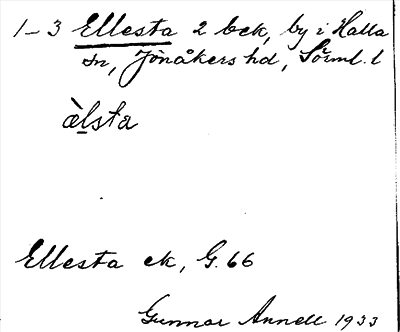 1-3 Ellesta 2 bck, by i Halla
sn, Jönåkers hd, Sörml. l
àlsta
Ellesta ek, G. 66
Gunnar Annell 1933